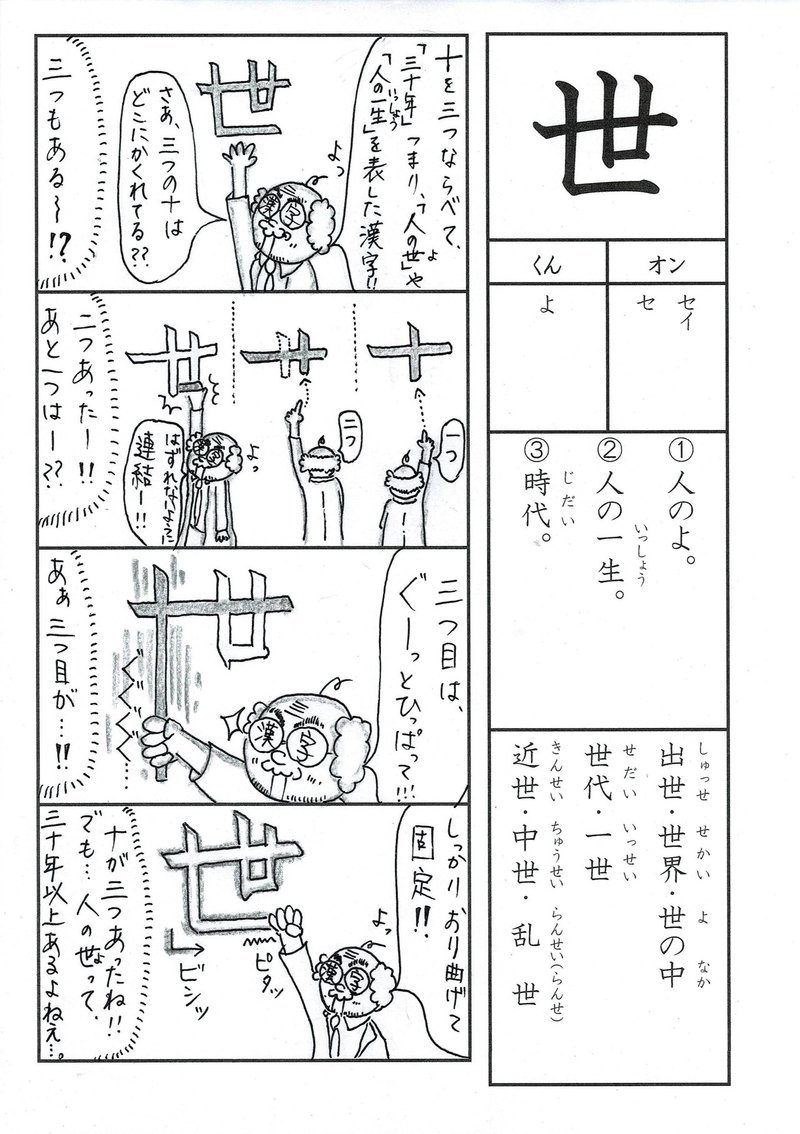 世
オン
くん
セイ
セ
よ
①人のよ。
②人の一生。
いっしょう
③時代。
じだい
出世・世界・世の中
しゅっせ せかい よ なか
世代・一世
せだい いっせい
近世・中世・乱世
きんせい ちゅうせい らんせい(らんせ)
十を三つならべて、
「三十年」つまり、「人の世」や
よ
「人の一生」を表した漢字!!
いっしょう
よっ
世
漢字
さあ、三つの十は
どこにかくれてる??
三つもある〜!?
一つ
二つ
よっ
はずれないように
連結ー!!
二つあったー!!
あと一つはー??
三つ目は、
ぐーっとひっぱって!!!
漢字
ぐぐぐぐ…
あぁ三つ目が…!!
しっかりおり曲げて
固定!!
よっ
漢字
世
ピタッ
ビシッ
十が三つあったね!!
でも…人の世って、
よ
三十年以上あるよねえ…。